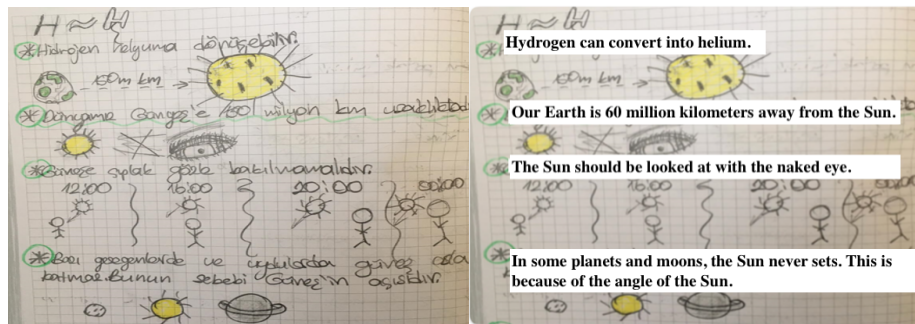 H ≈ H
*Hidrojen helyuma dönüşebilir.
150m km
*Dünyamız Güneş'e 150 milyon km
*Güneşe çıplak gözle bakılmamalıdır.
12:00 16:00 20:00 00:00
*Bazı gezegenlerde ve uydularda güneş asla
batmaz. Bunun sebebi Güneş'in açısıdır.
H ≈ H
Hydrogen can convert into helium.
150m km
Our Earth is 60 million kilometers away from the Sun.
The Sun should be looked at with the naked eye.
12:00 16:00 20:00 00:00
In some planets and moons, the Sun never sets. This is
because of the angle of the Sun.